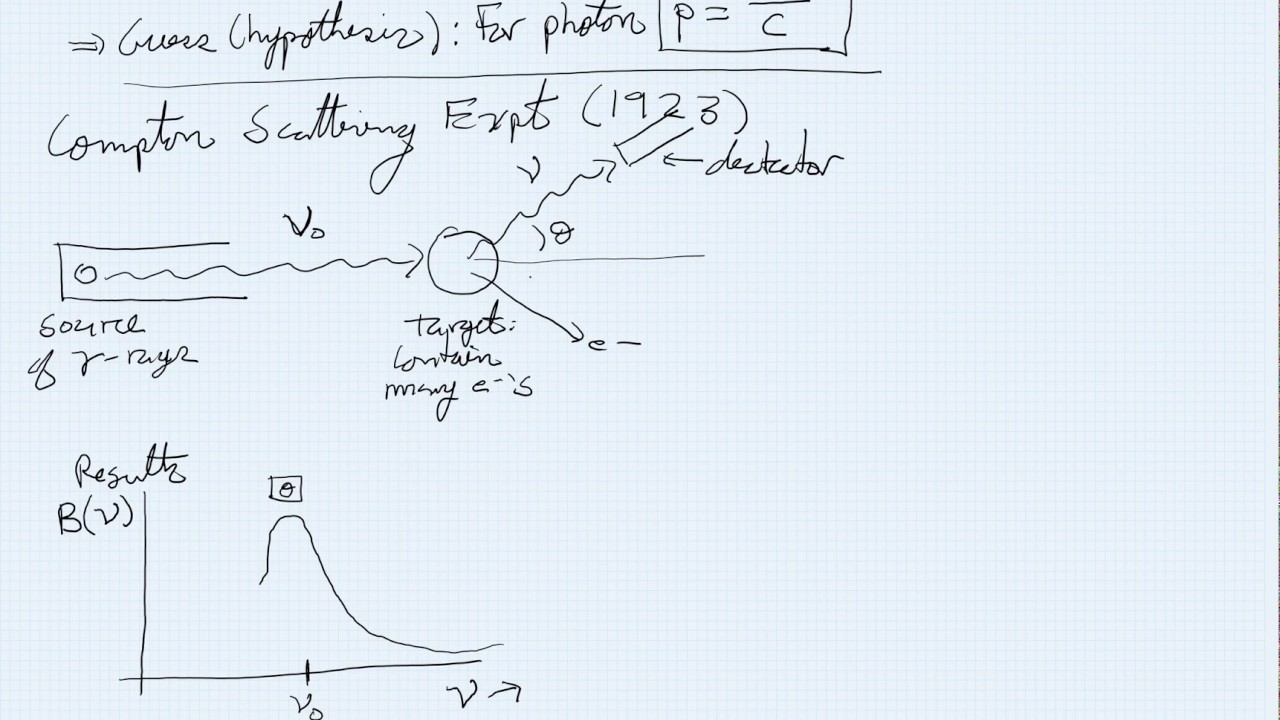 ⇒ Guess (hypothesis): For photon p = — / c
Compton Scattering Expt (1923)
ν
← dectator
ν₀
θ
source
of γ-rays
Target:
contain
many e⁻'s
e −
Results
B(ν)
θ
ν₀
ν →